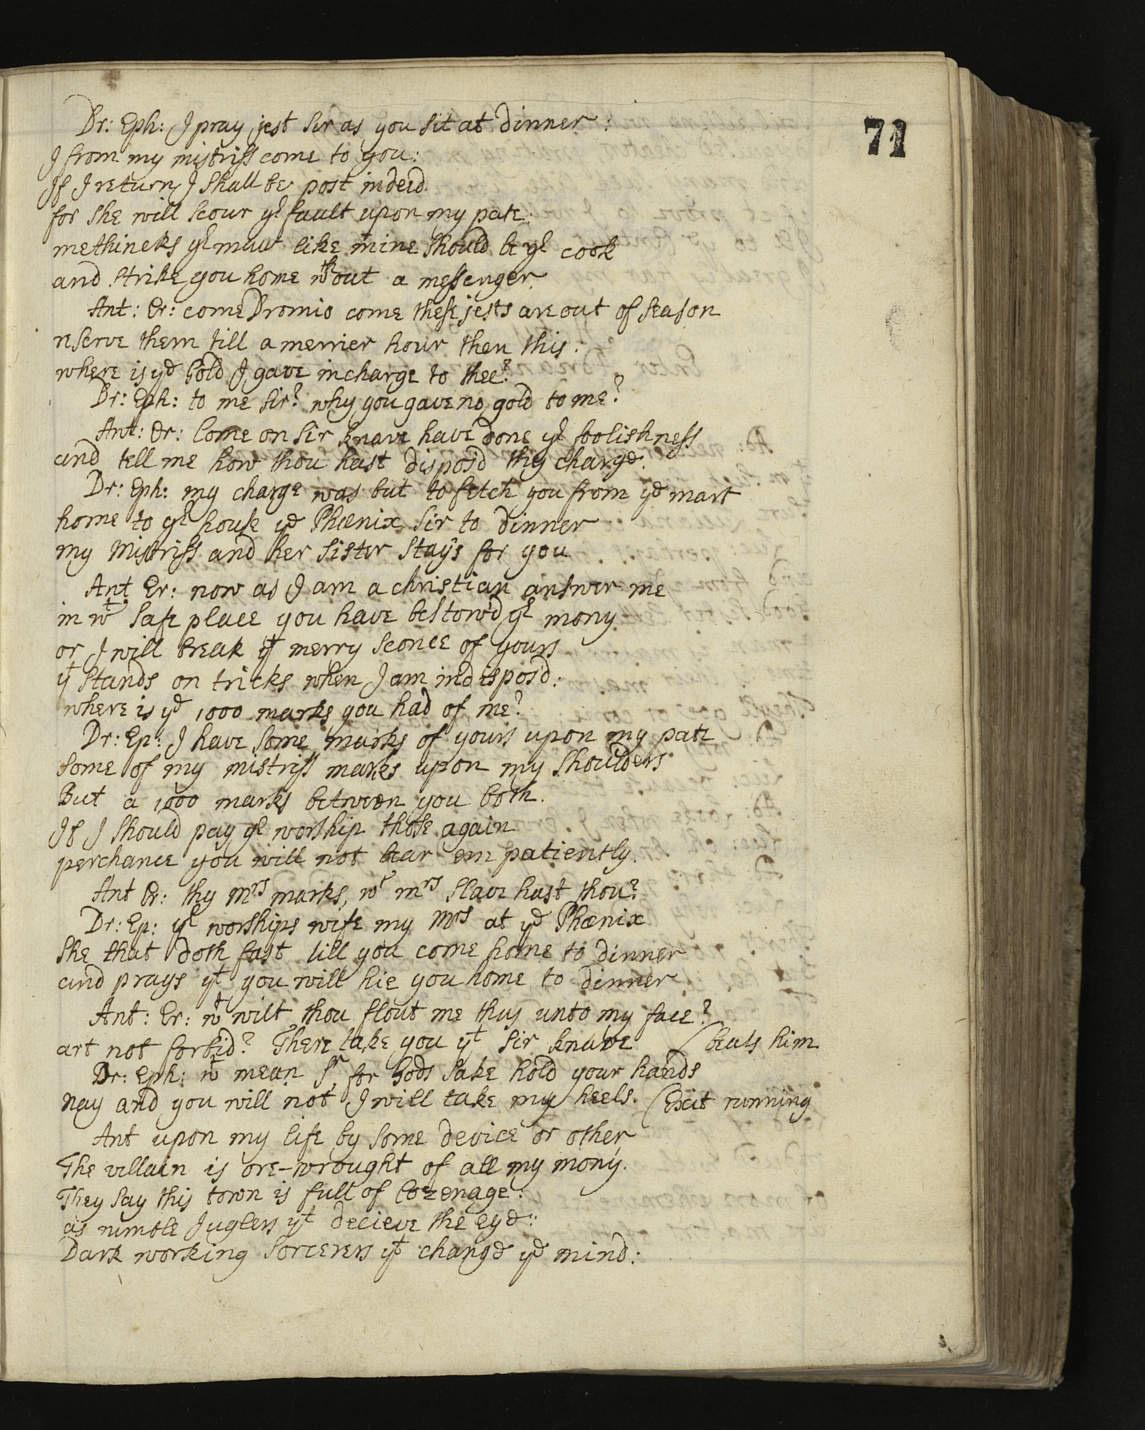 71
Dr: Eph: I pray jest sir as you sit at dinner:
I from my mistriss come to you:
If I return I shall be post indeed
for she will scour yr fault upon my pate:
methincks yr maw like mine should be yr cook
and strike you home wthout a messenger.
Ant: Er: come Dromio come these jests are out of season
reserve them till a merrier hour then this:
where is ye Gold I gave in charge to thee?
Dr: Eph: to me sir? why you gave no gold to me?
Ant: Er: Come on sir knave have done yr foolishness
and tell me how thou hast disposd thy charge.
Dr: Eph: my charge was but to fetch you from ye mart
home to yr house ye Phœnix sir to dinner
my Mistriss and her sister stays for you
Ant Er: now as I am a christian answer me
in wt safe place you have bestowd yr mony
or I will break yt merry sconce of yours
yt stands on tricks when I am indisposd:
where is ye 1000 marks you had of me?
Dr: Ep: I have some marks of yours upon my pate
some of my mistriss markes upon my shoulders
But a 1000 marks between you both.
If I should pay yr worship those again
perchance you will not bear em patiently.
Ant Er: thy Mrs marks, wt mrs slave hast thou?
Dr: Ep: yr worships wife my Mrs at ye Phœnix
she that doth fast till you come home to dinner
and prays yt you will hie you home to dinner
Ant: Er: wt wilt thou flout me thus unto my face?
art not forbid? There take you yt sir knave (beats him
Dr: Eph: wt mean Sr for Gods sake hold your hands
nay and you will not I will take my heels. (Exit running
Ant upon my life by some device or other
The villain is ore-wrought of all my mony.
They say this town is full of Cozenage:
as nimble Juglers yt decieve the eye:
Dark working Sorcerers yt change ye mind: